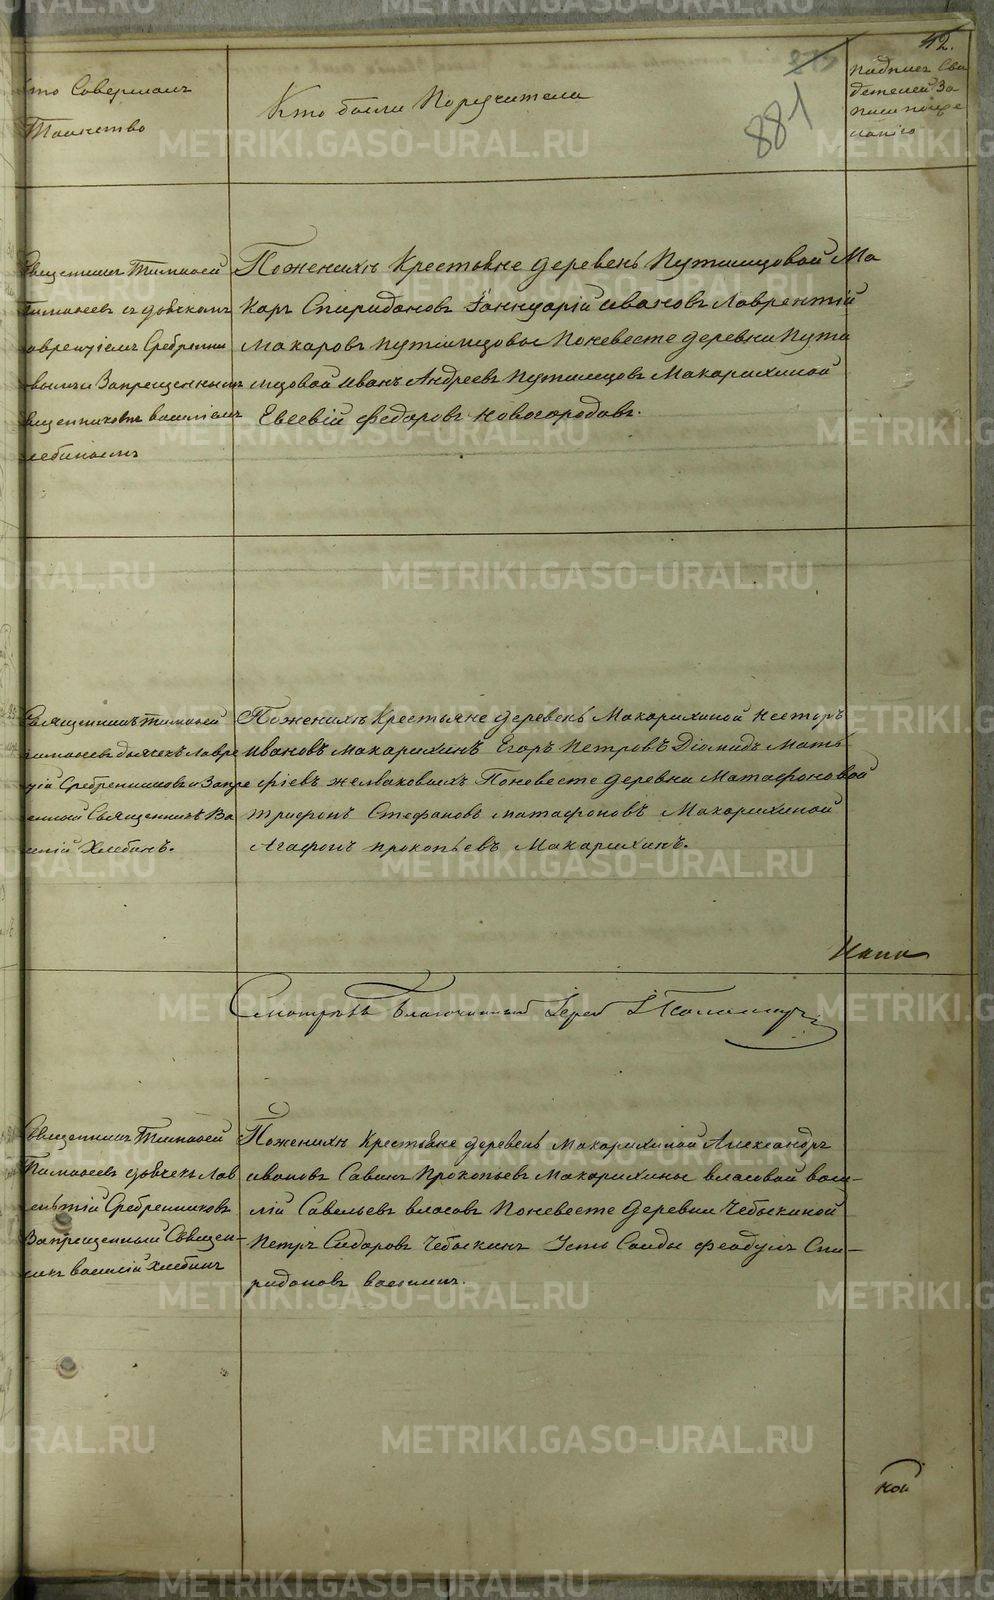 42.
875
881
Кто Совершалъ
Таинство
Кто были Поручители
Подпись Сви
детелей За
писи по же
ланію
Священникъ Тимофей
Тимофеевъ съ дьячкомъ
Лаврентіемъ Сребренни
ковымъ и Запрещеннымъ
Священникомъ Василіемъ
Хлебинымъ
По женихѣ Крестьяне деревень Путимцовой Ма
каръ Спиридоновъ Іаннуарій Ивановъ Лаврентій
Макаровъ Путимцовы По невесте деревни Пути
мцовой Иванъ Андреевъ Путимцовъ Макарихиной
Евсевій Федоровъ Новогородовъ.
Священникъ Тимофей
Тимофеевъ дьячекъ Лавре
нтій Сребренниковъ и Запре
щенный Священникъ Ва
силій Хлебинъ.
По женихѣ Крестьяне деревень Макарихиной Несторъ
Ивановъ Макарихинъ Егоръ Петровъ Діомидъ Мать
фіевъ Желваковыхъ По невесте деревни Матафоновой
Трифонъ Стефановъ Матафоновъ Макарихиной
Агафонъ Прокопьевъ Макарихинъ.
Смотрѣлъ Благочинный Іерей
Священникъ Тимофей
Тимофеевъ дьячекъ Лав
рентій Сребренниковъ
Запрещенный Священ-
никъ Василій Хлебинъ
По женихѣ Крестьяне деревень Макарихиной Александръ
Ивановъ Савинъ Прокопьевъ Макарихины Власовой Васи-
лій Савельевъ Власовъ По невесте деревни Чебыкиной
Петръ Сидоровъ Чебыкинъ Усть Саиды Феодулъ Спи-
ридоновъ Васькинъ.
кой